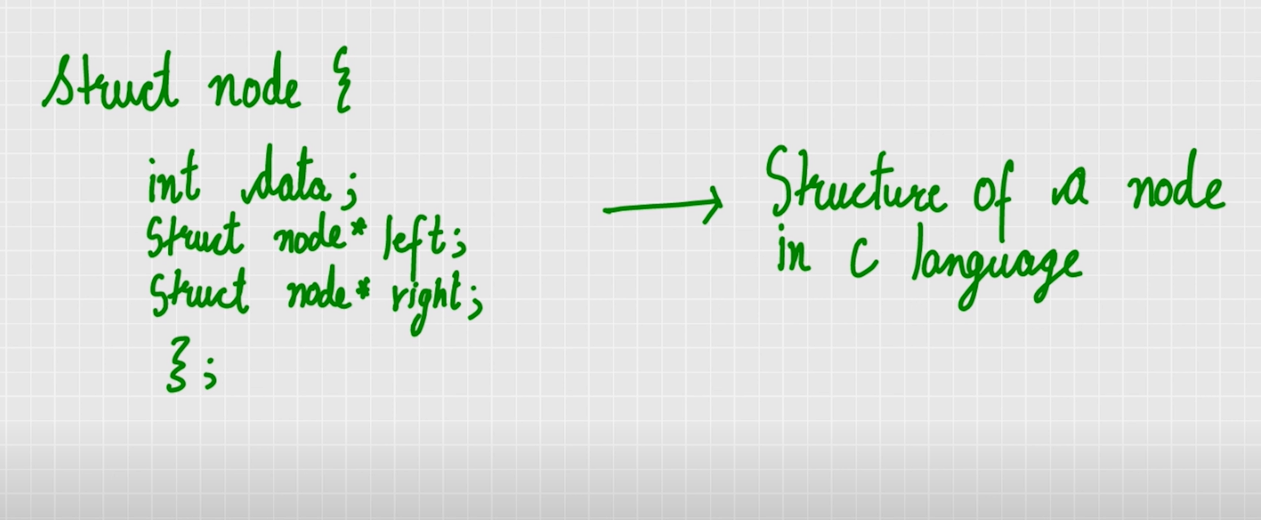 struct node {
int data;
struct node* left;
struct node* right;
};
Structure of a node
in C language